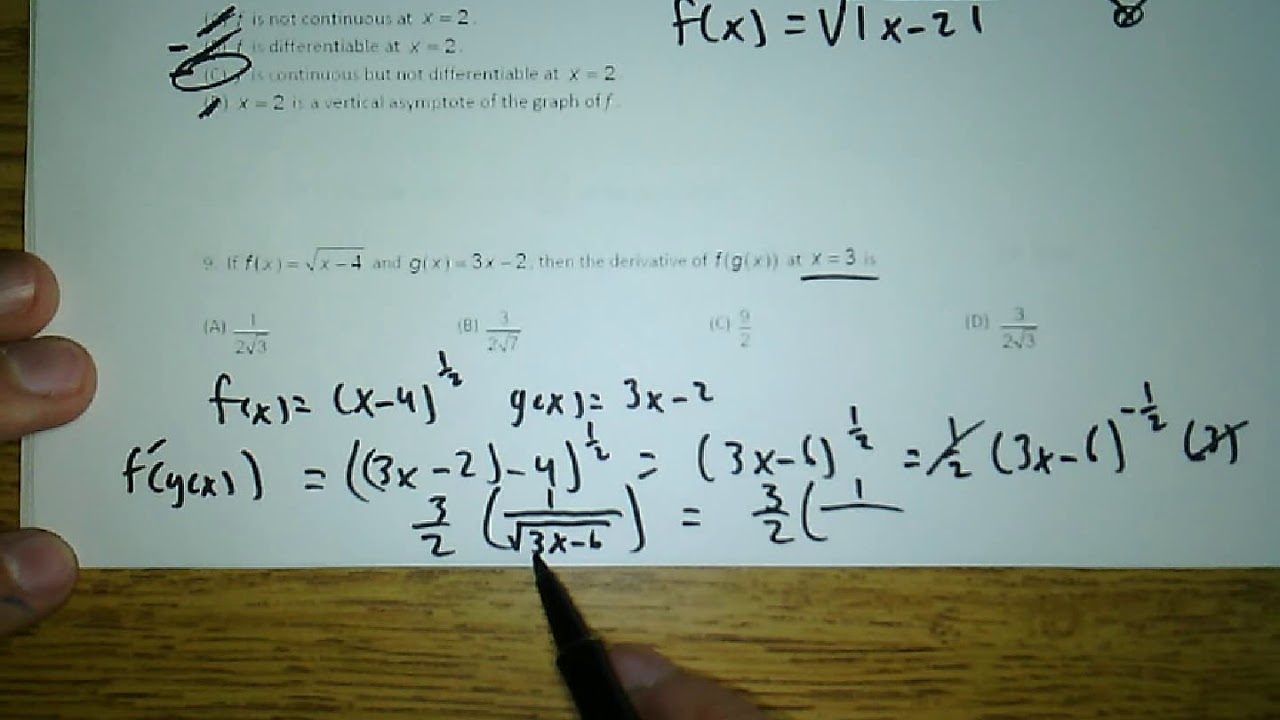 f is not continuous at x = 2. f(x) = √|x-2|
f is differentiable at x = 2.
(C) f is continuous but not differentiable at x = 2
(D) x = 2 is a vertical asymptote of the graph of f.
9. If f(x) = √(x-4) and g(x) = 3x - 2, then the derivative of f(g(x)) at x = 3 is
(A) 1/(2√3) (B) 3/(2√7) (C) 9/2 (D) 3/(2√3)
f(x) = (x-4)^(1/2) g(x) = 3x-2
f'(g(x)) = ((3x-2)-4)^(1/2) = (3x-6)^(1/2) = 1/2 (3x-6)^(-1/2) (3)
3/2 (1/√(3x-6)) = 3/2 (1/